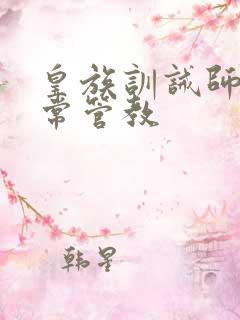 皇族訓誡師
常管教
韩星